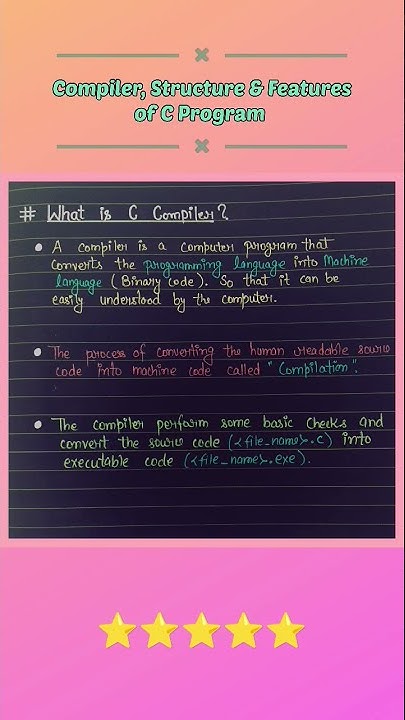 Compiler, Structure & Features
of C Program
# What is C Compiler?
• A compiler is a computer program that
converts the programming language into Machine
language (Binary code). So that it can be
easily understood by the computer.
• The process of converting the human readable source
code into machine code called "Compilation".
• The compiler perform some basic checks and
convert the source code (<file_name>.c) into
executable code (<file_name>.exe).